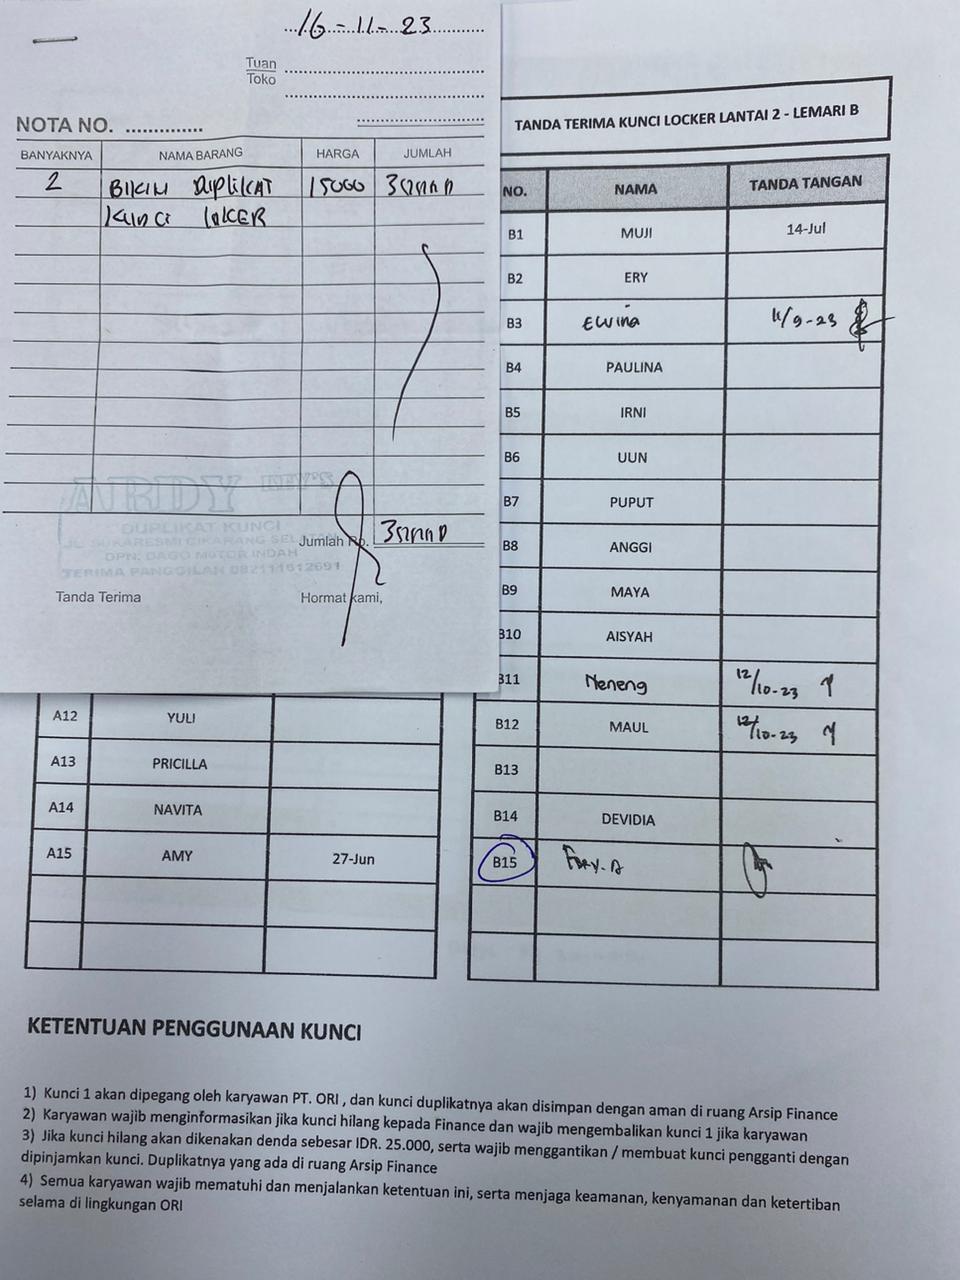 16-11-23
Tuan
Toko
NOTA NO. ..............
BANYAKNYA NAMA BARANG HARGA JUMLAH
2 BIKIN DUPLIKAT 15000 30000
KUNCI LOKER
ARDY KEY'S
DUPLIKAT KUNCI
JL. SUKARESMI CIKARANG SELATAN
DPN. DAGO MOTOR INDAH
TERIMA PANGGILAN 082111612691
Jumlah Rp. 30000
Tanda Terima Hormat kami,
TANDA TERIMA KUNCI LOCKER LANTAI 2 - LEMARI B
NO. NAMA TANDA TANGAN
B1 MUJI 14-Jul
B2 ERY
B3 Elvina 11/9-23
B4 PAULINA
B5 IRNI
B6 UUN
B7 PUPUT
B8 ANGGI
B9 MAYA
B10 AISYAH
B11 Neneng 12/10-23
B12 MAUL 12/10-23
B13
B14 DEVIDIA
B15
A12 YULI
A13 PRICILLA
A14 NAVITA
A15 AMY 27-Jun
KETENTUAN PENGGUNAAN KUNCI
1) Kunci 1 akan dipegang oleh karyawan PT. ORI , dan kunci duplikatnya akan disimpan dengan aman di ruang Arsip Finance
2) Karyawan wajib menginformasikan jika kunci hilang kepada Finance dan wajib mengembalikan kunci 1 jika karyawan
3) Jika kunci hilang akan dikenakan denda sebesar IDR. 25.000, serta wajib menggantikan / membuat kunci pengganti dengan
dipinjamkan kunci. Duplikatnya yang ada di ruang Arsip Finance
4) Semua karyawan wajib mematuhi dan menjalankan ketentuan ini, serta menjaga keamanan, kenyamanan dan ketertiban
selama di lingkungan ORI